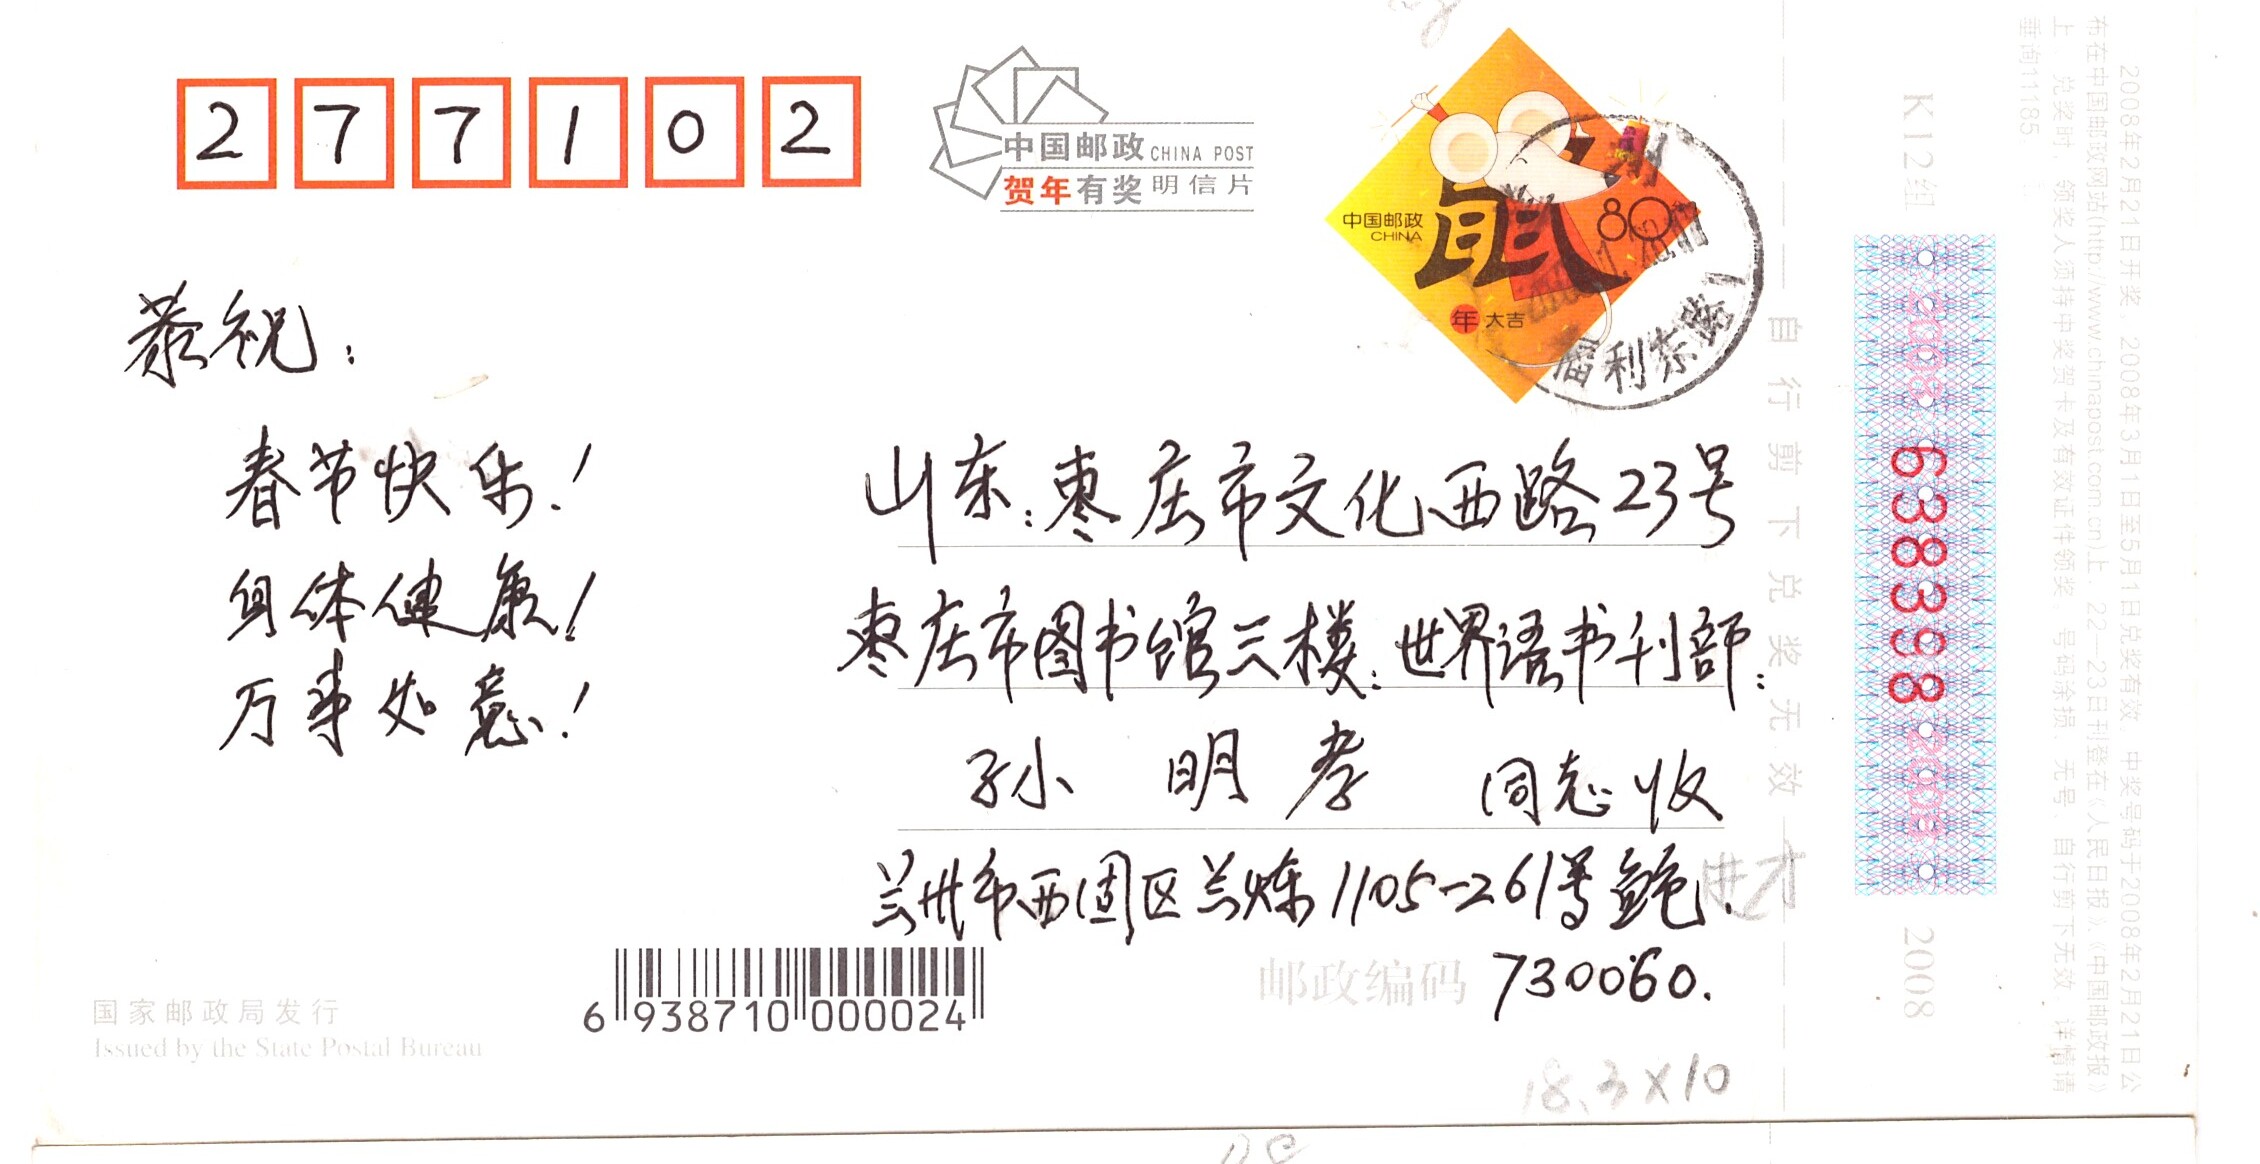 2 7 7 1 0 2
中国邮政 CHINA POST
贺年有奖 明信片
中国邮政
CHINA
鼠
80
年 大吉
福利东路
恭祝：
春节快乐！
身体健康！
万事如意！
山东：枣庄市文化西路23号
枣庄市图书馆三楼：世界语书刊部：
孙 明 孝 同志收
兰州市西固区兰炼1105-261号鲍.
邮政编码 730060.
国家邮政局发行
Issued by the State Postal Bureau
6 938710 000024
18.3×10
自行剪下兑奖无效
K12组 2008 638398 2008 2008
2008年2月21日开奖，2008年3月1日至5月1日兑奖有效，中奖号码于2008年2月21日公
布在中国邮政网站(http://www.chinapost.com.cn)上，22—23日刊登在《人民日报》、《中国邮政报》
上。兑奖时，领奖人须持中奖贺卡及有效证件领奖，号码涂损、无号、自行剪下无效，详情请
垂询11185